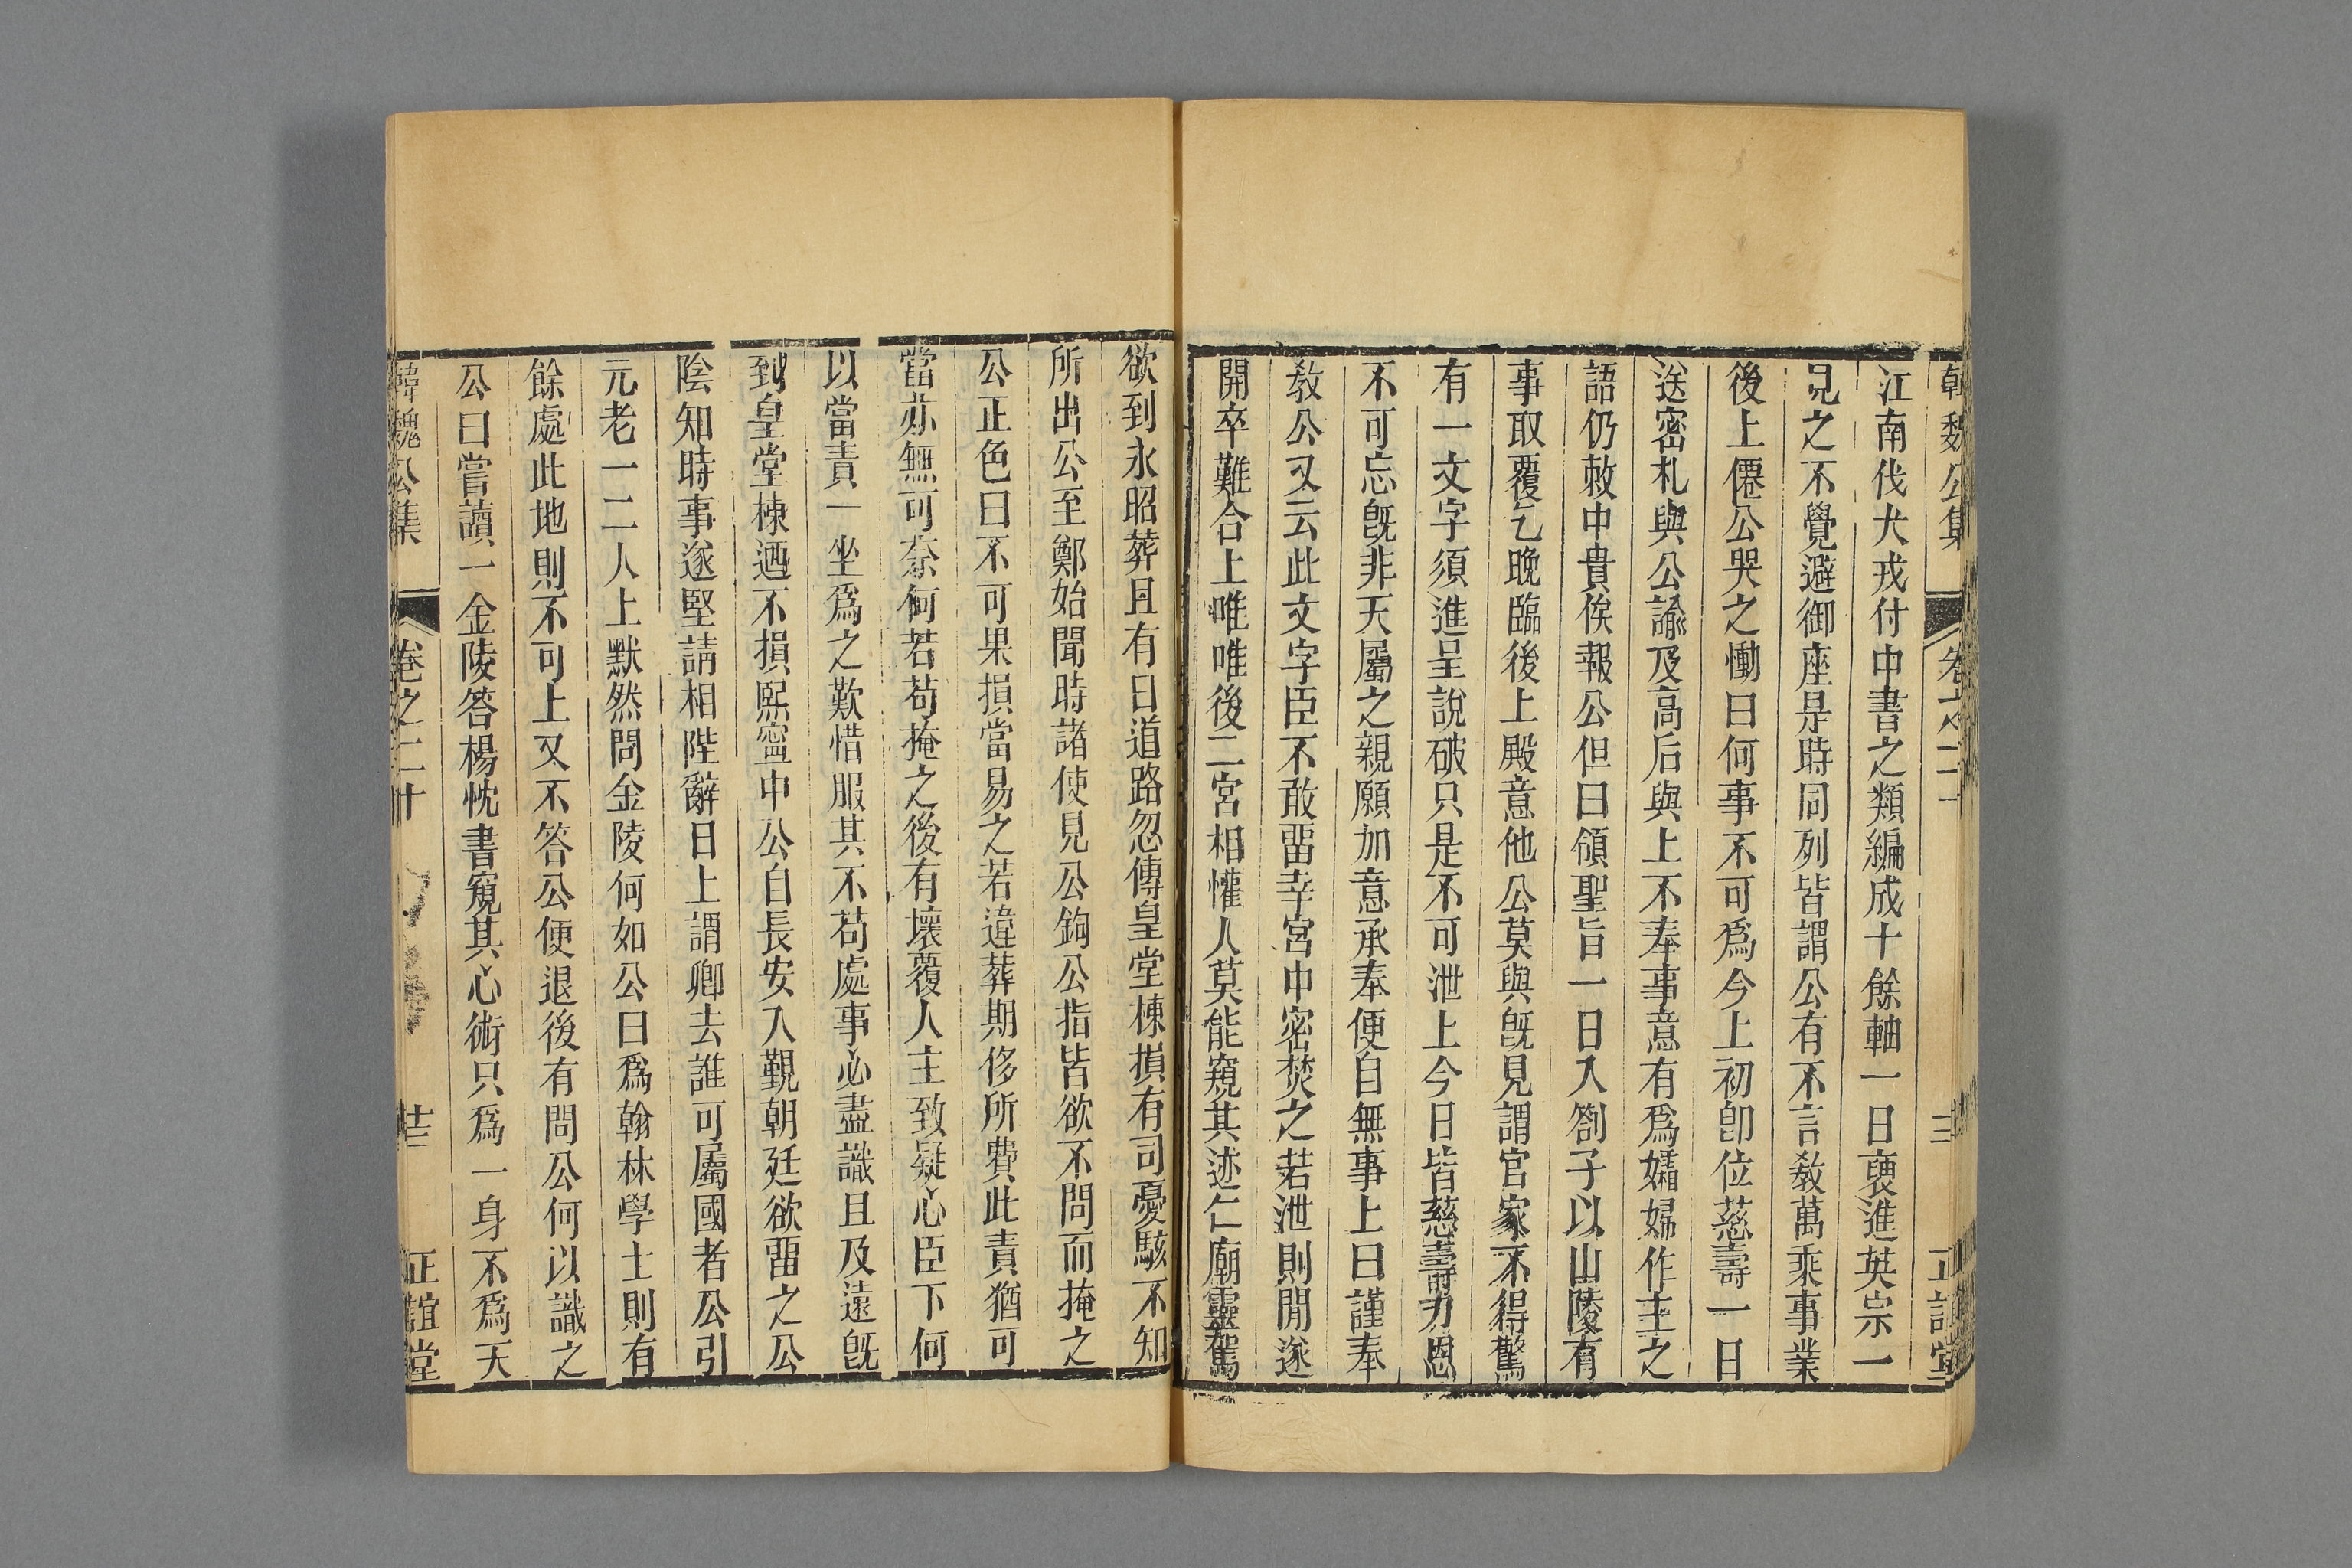 韓魏公集 卷之二十 三 正誼堂
江南伐犬戎付中書之類編成十餘軸一日裒進英宗一
見之不覺避御座是時同列皆謂公有不言敎萬乘事業
後上僊公哭之慟曰何事不可爲今上初卽位慈壽一日
送密札與公諭及高后與上不奉事意有爲孀婦作主之
語仍敕中貴俟報公但曰領聖旨一日入劄子以山陵有
事取覆乞晚臨後上殿意他公莫與旣見謂官家不得驚
有一文字須進呈說破只是不可泄上今日皆慈壽力恩
不可忘旣非天屬之親願加意承奉便自無事上曰謹奉
敎公又云此文字臣不敢畱幸宮中密焚之若泄則閒遂
開卒難合上唯唯後二宮相懽人莫能窺其迹仁廟靈駕
欲到永昭葬且有日道路忽傳皇堂棟損有司憂駭不知
所出公至鄭始聞時諸使見公鉤公指皆欲不問而掩之
公正色曰不可果損當易之若違葬期侈所費此責猶可
當亦無可奈何若苟掩之後有壞覆人主致疑心臣下何
以當責一坐爲之歎惜服其不苟處事必盡識且及遠旣
到皇堂棟迺不損熙寧中公自長安入覲朝廷欲畱之公
陰知時事遂堅請相陛辭日上謂卿去誰可屬國者公引
元老一二人上默然問金陵何如公曰爲翰林學士則有
餘處此地則不可上又不答公便退後有問公何以識之
公曰嘗讀一金陵答楊忱書窺其心術只爲一身不爲天
韓魏公集 卷之二十 正誼堂